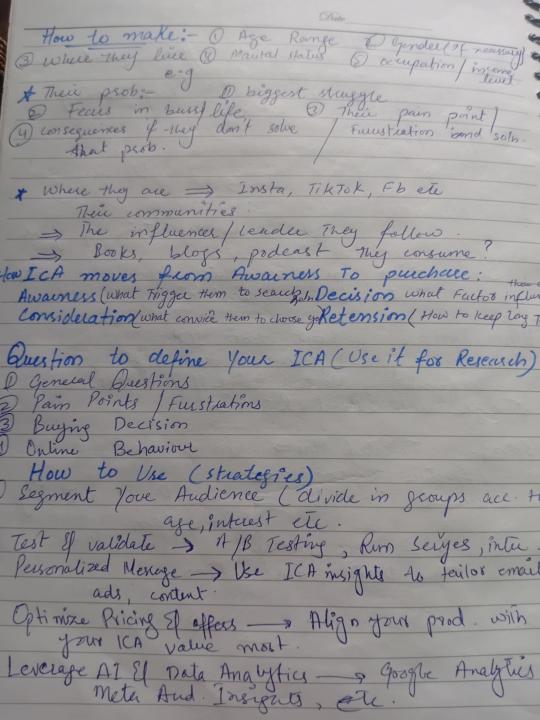 Date
How to make:- ① Age Range ② Gender (if necessary)
③ Where they live ④ Marital status ⑤ occupation/income level.
e-g
* Their prob:- ① biggest struggle
② Fears in buss/life, ③ Their pain point/
④ consequences if they don't solve / Furustration bond soln.
that prob.
* Where they are ⇒ Insta, TikTok, Fb etc
Their communities.
⇒ The influencer/Leader They follow.
⇒ Books, blogs, podcast they consume?
How ICA moves from Awarness To purchase:
Awarness (what Trigger them to search Decision what Factor influ
Consideration (what convice them to choose yo Retension (How to keep
Question to define Your ICA (Use it for Research)
① General Questions
② Pain Points / Furstrations
③ Buying Decision
Online Behaviour
How to Use (strategies)
Segment Your Audience (divide in groups acc.
age, interest etc.
Test & validate → A/B Testing, Run
Personalized Message → Use ICA insights to tailor email
ads, content.
Optimize Pricing & offers → Align your prod. with
your ICA value most.
Leverage AI & Data Analytics → Google Analytics
Meta Aud. Insights, etc.